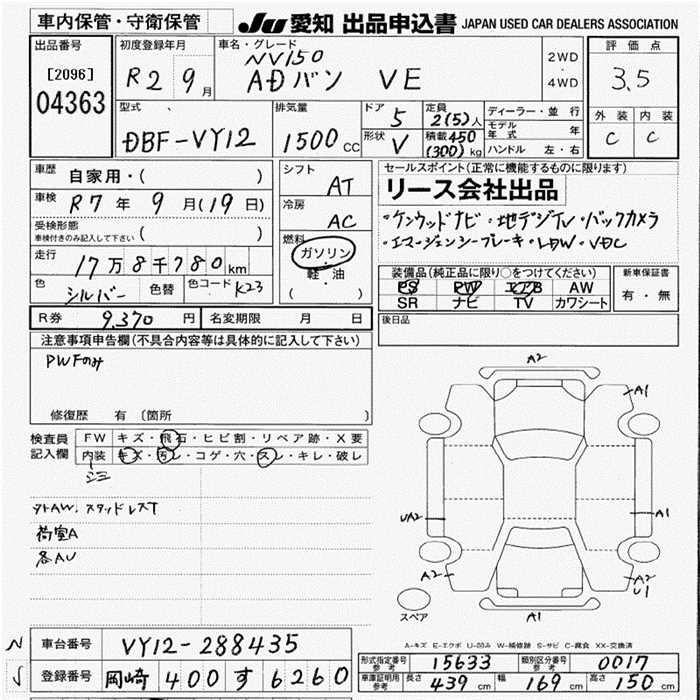 車内保管・守衛保管
JU 愛知 出品申込書 JAPAN USED CAR DEALERS ASSOCIATION
出品番号
[2096]
04363
初度登録年月
R2 9月
車名・グレード
NV150
ADバン VE
2WD
・
4WD
評価点
3.5
外装 内装
C C
型式
DBF-VY12
排気量
1500cc
ドア 5
形状 V
定員 2(5)人
積載 450
(300)kg
ディーラー・並行
モデル年式 年
ハンドル 左・右
車歴
自家用・( )
車検 R7年 9月(19日)
受検形態
車検付きのみ記入して下さい ( )
走行 17万8千780km
色 シルバー 色替 色コード K23
シフト AT
冷房 AC
燃料
ガソリン
軽・油
( )
セールスポイント(正常に機能するものに限ります)
リース会社出品
・ケンウッドナビ・地デジTV・バックカメラ
・エマージェンシーブレーキ・LDW・VDC
装備品(純正品に限り○をつけてください)
PS PW エアB AW
SR ナビ TV カワシート
新車保証書
有・無
後日品
R券 9,370円 名変期限 月 日
注意事項申告欄(不具合内容等は具体的に記入して下さい)
PWFのみ
修復歴 有 〔箇所 〕
検査員
記入欄
FW キズ・飛石・ヒビ割・リペア跡・X要
内装 キズ・汚レ・コゲ・穴・スレ・キレ・破レ
シミ
外AW、スタッドレスT
荷室A
各AU
A2
A1
UA2
A1
A2
A2
U1
A1
スペア
A-キズ E-エクボ U-凹み W-補修跡 S-サビ C-腐食 XX-交換済
N 車台番号 VY12-288435
登録番号 岡崎 400 す 6260
形式指定番号 参考 15633 類別区分番号 参考 0017
車庫証明用 参考 長さ 439cm 幅 169cm 高さ 150cm